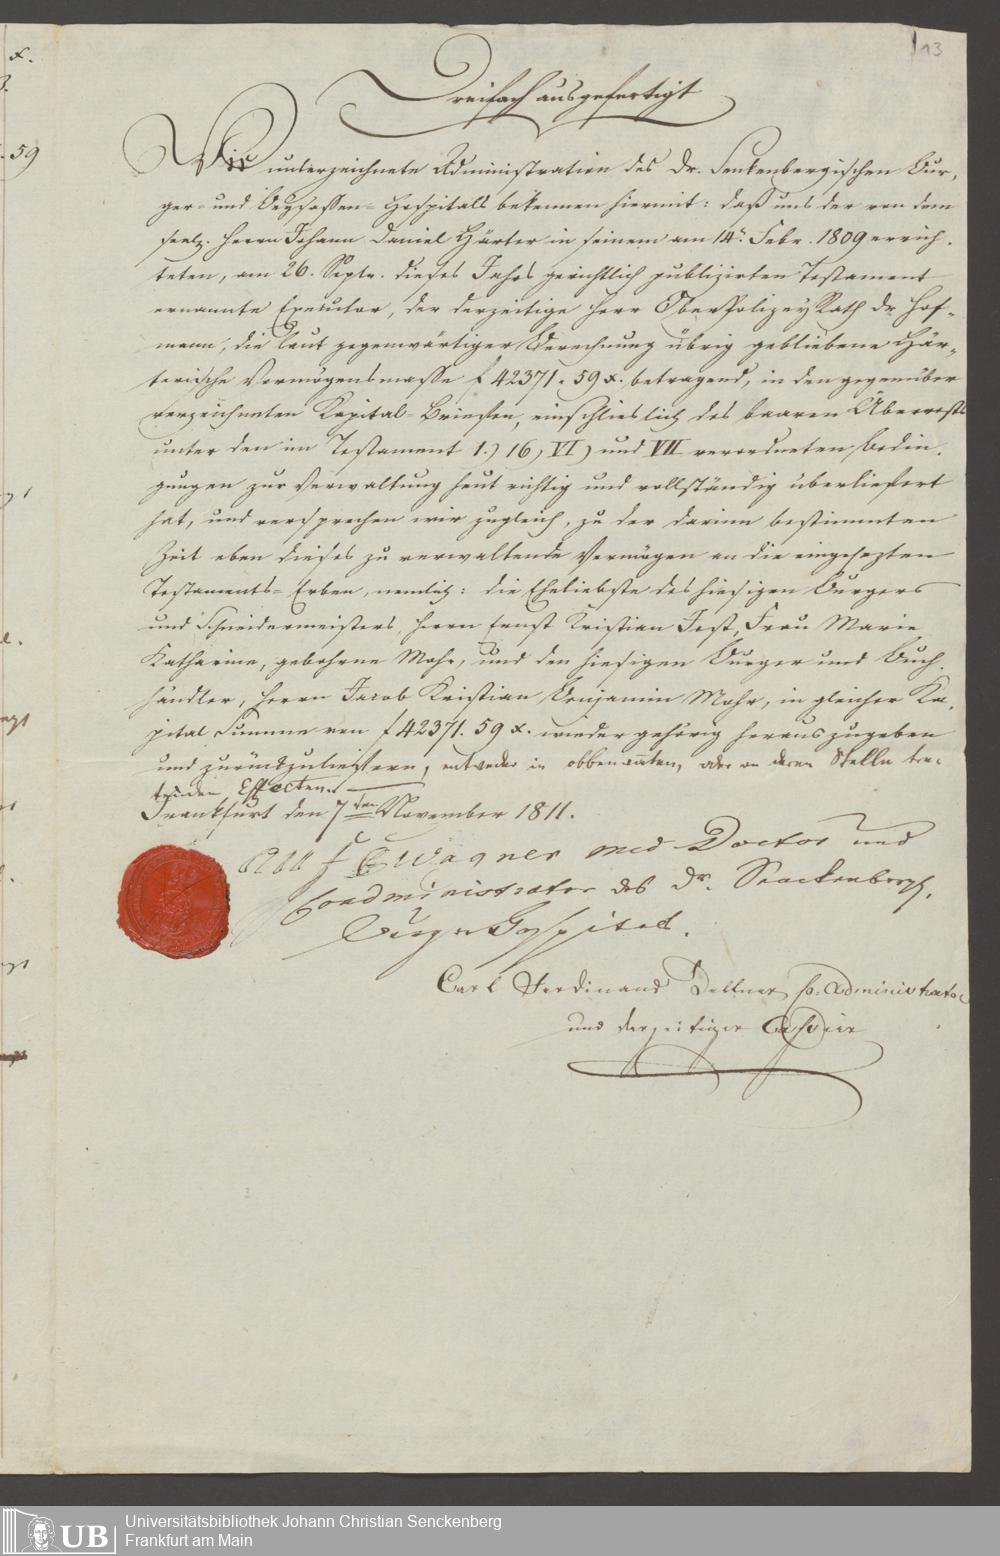 13
x.
3.
. 59
Dreifach ausgefertigt
Wir unterzeichnete Administration des Dr. Senkenbergischen Bur-
ger- und Beysassen-Hospitals bekennen hiermit: daß uns der von dem
seelg. Herrn Johann Daniel Härter in seinem am 14n. Febr. 1809 errich-
teten, am 26. Septr. dieses Jahrs gerichtlich publizirten Testament
ernannte Executor, der derzeitige Herr OberPolizeyRath Dr Hof-
mann, die laut gegenwärtiger Berechnung übrig gebliebene Här-
terische Vermögensmasse f 42371. 59 x. betragend, in den gegenüber
verzeichneten Kapital-Briefen, einschlieslich des baaren Überrests
unter den im Testament 1.) 16, VI) und VII verordneten Bedin-
gungen zur Verwaltung heut richtig und vollständig überliefert
hat, und versprechen wir zugleich, zu der darinn bestimmten
Zeit eben dieses zu verwaltende Vermögen an die eingesezten
Testaments-Erben, nemlich: die Eheliebste des hiesigen Burgers
und Schneidermeisters, Herrn Ernst Kristian Jost, Frau Marie
Katharine, gebohrne Mohr, und den hiesigen Burger und Buch-
händler, Herrn Jacob Kristian Benjamin Mohr, in gleicher Ka-
pital Summe von f 42371. 59 x. wieder gehörig herauszugeben
und zurückzuliefern, entweder in obbenanten, oder an deren Stelle tre-
tenden Effecten.
Frankfurt den 7ten November 1811.
Wagner med Doctor und
Coadministrator des Dr. Senckenberg.
Burger Hospital.
Carl Ferdinand Kellner Co. Administrator
und derzeitiger Cassier
UB
Universitätsbibliothek Johann Christian Senckenberg
Frankfurt am Main